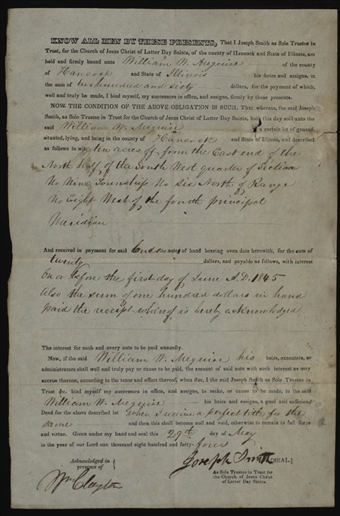 KNOW ALL MEN BY THESE PRESENTS, That I Joseph Smith as Sole Trustee in
Trust, for the Church of Jesus Christ of Latter Day Saints, of the county of Hancock and State of Illinois, am
held and firmly bound unto William W. of the county
of Hancock and State of Illinois his heirs and assigns, in
the sum of two hundred and sixty dollars, for the payment of which,
well and truly to be made, I bind myself, my successors in office, and assigns, firmly by these presents.
NOW, THE CONDITION OF THE ABOVE OBLIGATION IS SUCH, That whereas, the said Joseph
Smith, as Sole Trustee in Trust for the Church of Jesus Christ of Latter Day Saints, has this day sold unto the
said William W. a certain lot of ground
situated, lying, and being in the county of Hancock and State of Illinois, and described
as follows to wit: ten acres off from the East end of the
North Half of the South West quarter of Section
No Nine Township No Six North of Range
No Eight West of the fourth principal
Meridian
And received in payment for said of land bearing even date herewith, for the sum of
twenty dollars, and payable as follows, with interest
On or before the first day of June A.D. 1845
Also the sum of one hundred dollars in hand
paid the receipt whereof is hereby acknowledged
The interest for each and every note to be paid annually.
Now, if the said William W. his heirs, executors, or
administrators shall well and truly pay or cause to be paid, the amount of said note with such interest as may
accrue thereon, according to the tenor and effect thereof, when due, I the said Joseph Smith as Sole Trustee in
Trust &c. bind myself my successors in office, and assigns, to make, or cause to be made, to the said
William W. his heirs and assigns, a good and sufficient
Deed for the above described lot when I receive a perfect title for the
same and then this shall become null and void, otherwise to remain in full force
and virtue. Given under my hand and seal this 29th day of May
in the year of our Lord one thousand eight hundred and forty-four
Acknowledged in
presence of
Joseph Smith [SEAL.]
As Sole Trustee in Trust for
the Church of Jesus Christ
of Latter Day Saints.
Wm Clayton